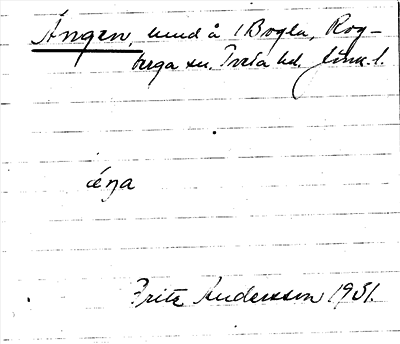 Ängen, lund å 1 Bogla, Rog-
berga sn. Tveta hd. Jönk. l.
äŋa
Fritz Andersson 1931.